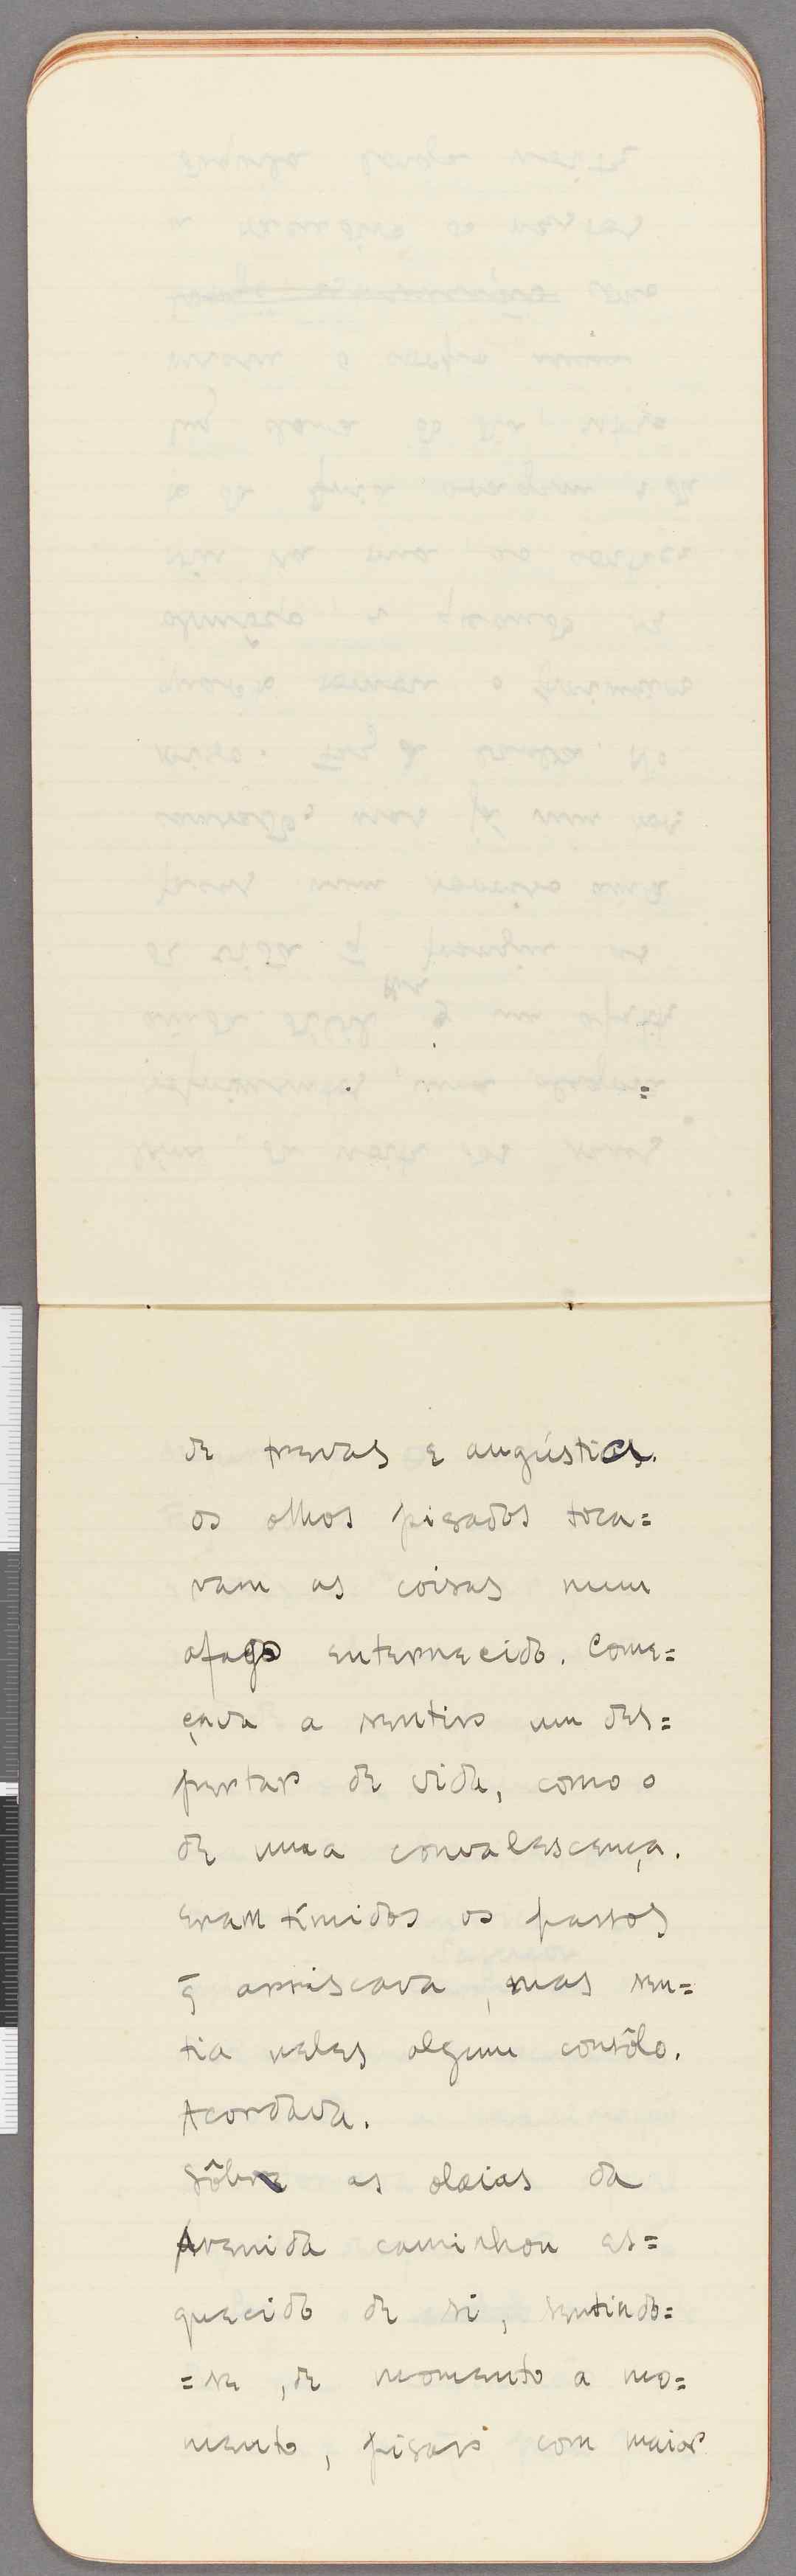 de trevas e angústias.
os olhos pisados toca=
vam as coisas num
afago enternecido. Come=
çava a sentir um des=
pertar de vida, como o
de uma convalescença.
eram tímidos os passos
q̄ arriscava, mas sen=
tia neles algum consôlo.
Acordava.
Sôbre as olaias da
Avenida caminhou es=
quecido de si, sentindo=
=se, de momento a mo=
mento, pisar com maior